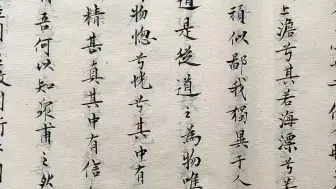 澹兮其若海漂兮
頑似鄙我獨異于人
道是從道之為物唯
物惚兮恍兮其中有
精甚真其中有信
吾何以知眾甫之然